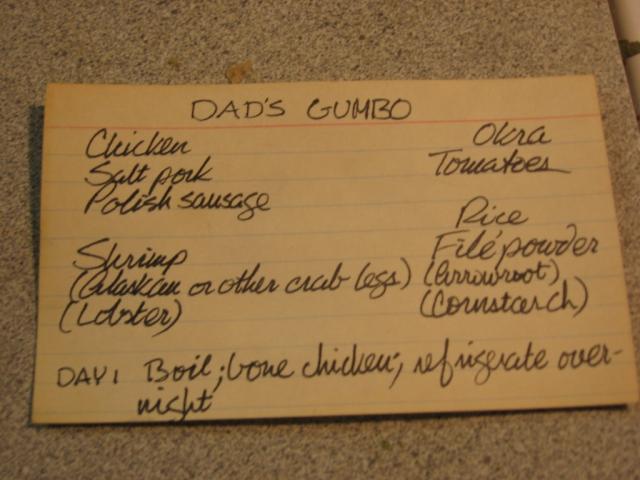 DAD'S GUMBO
Chicken
Salt pork
Polish sausage
Shrimp
(Alaskan or other crab legs)
(Lobster)
Okra
Tomatoes
Rice
Filé powder
(Arrowroot)
(Cornstarch)
DAY 1 Boil; bone chicken; refrigerate over-
night